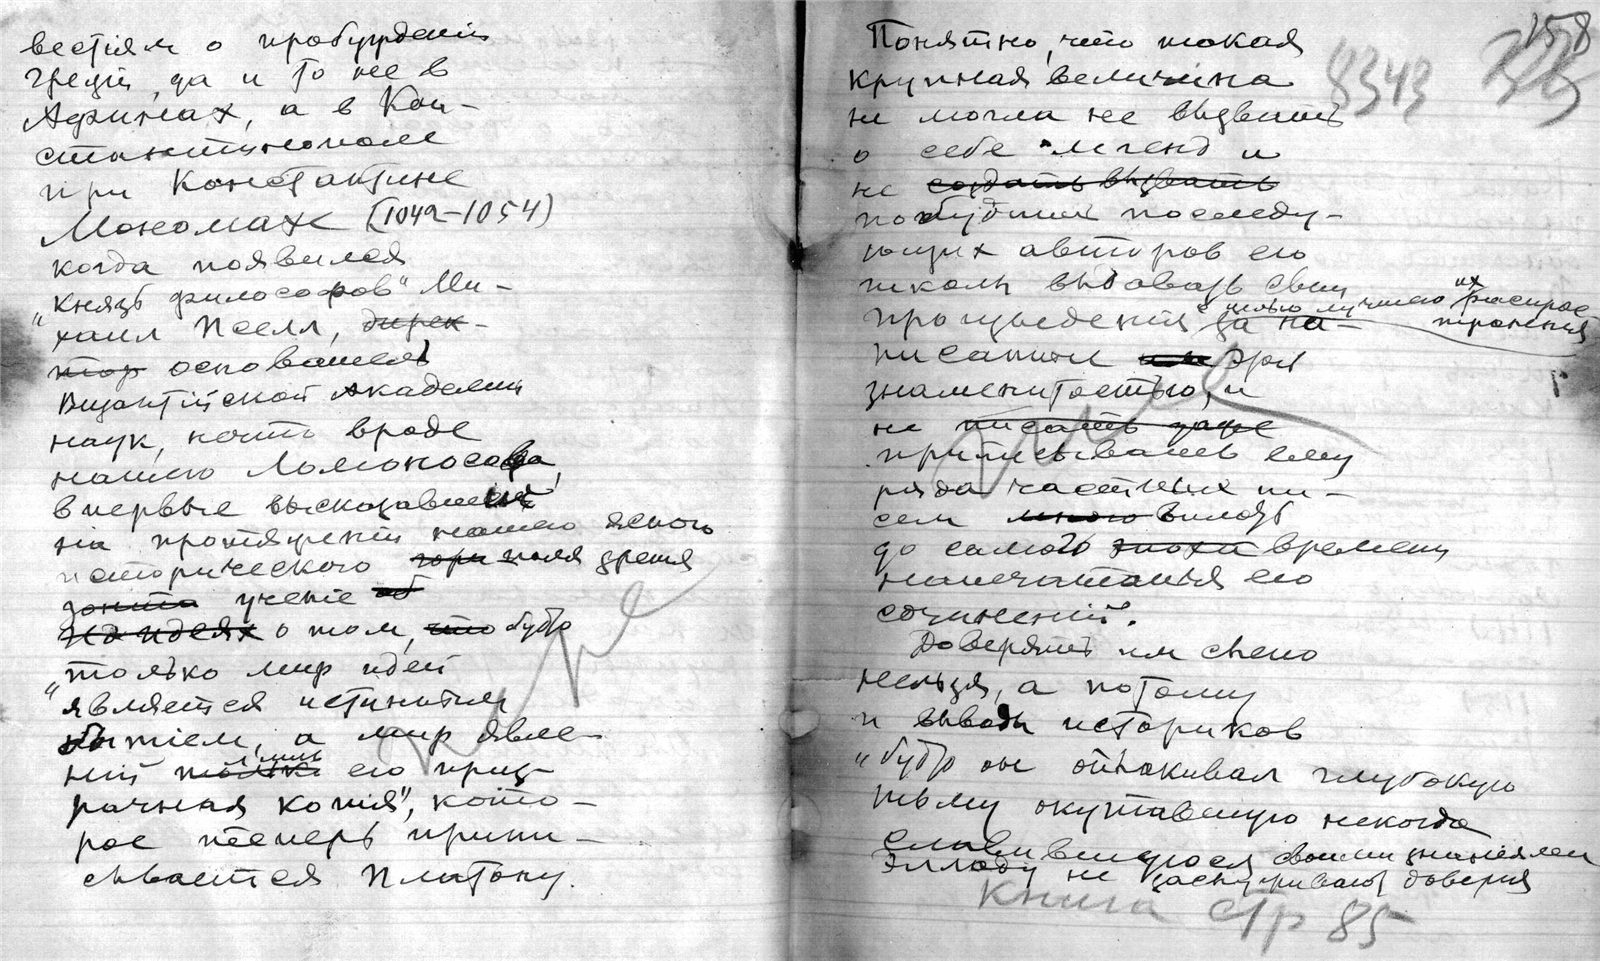 вестіям о пробужденіи
Греціи, да и то не в
Афинах, а в Кон-
стантинополе
при Константине
Мономахе (1042-1054)
когда появился
"князь философов" Ми-
хаил Пселл, дирек-
тор основатель
Византійской Академии
наук, нечто вроде
нашего Ломоносова,
впервые высказавшій
на протяженіи нашего ясного
исторического гори поля зренія
зонта ученіе об
о том, что будто
"только мир идей
является истинным
бытіем, а мир явле-
ній только лишь его приз-
рачная копія", кото-
рое теперь припи-
сывается Платону.
Понятно, что такая
крупная величина
не могла не вызвать
о себе легенд и
не создать вызвать
побудить последу-
ющих авторов его
школы выдавать свои
произведенія целью лучшего их распрос
транения
за на-
писанные этой
знаменитостью, и
не писать даже
приписывать ему
ряда частных пи-
сем много вплоть
до самого эпохи времени
напечатанья его
сочиненій.
Доверять им слепо
нельзя, а потому
и выводы историков
"будто он оплакивал глубокую
тьму окутавшую некогда
славившуюся своими знаніями
Элладу не заслуживают доверия
книга стр 85
8343
158